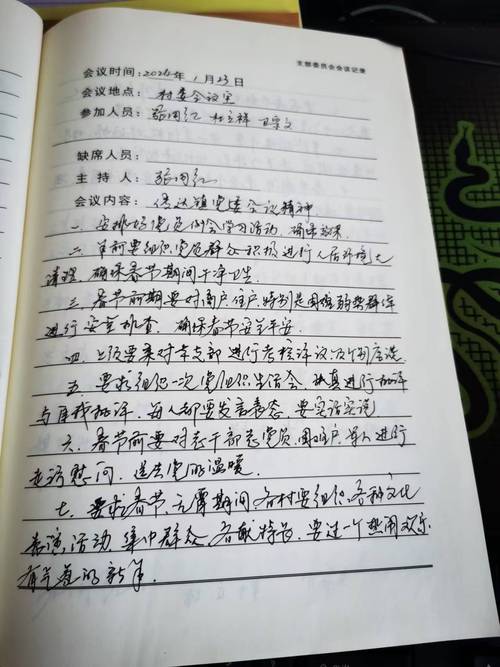 支部委员会会议记录
会议时间:2024年1月23日
会议地点: 村委会议室
参加人员: 张国红 杜立祥
缺席人员:
主持人: 张国红
会议内容: 传达镇党委会议精神
一、安排好党员例会学习活动,确保效果。
二、目前要组织党员群众积极进行人居环境大
清理,确保春节期间干净卫生。
三、春节前期要对商户住户特别是困难弱势群体
进行安全检查,确保春节安全平安。
四、上级要求对本支部进行考核评议及个别座谈
五、要求组织一次党组织生活会,认真进行批评
与自我批评,每人都要发言表态,要实话实说
六、春节前要对老干部老党员、困难户、军人进行
走访慰问,送去党的温暖。
七、要求春节、元宵期间,各村要组织各种文化
表演活动,集中群众,各献特色,要过一个热闹欢乐
有气氛的新年。